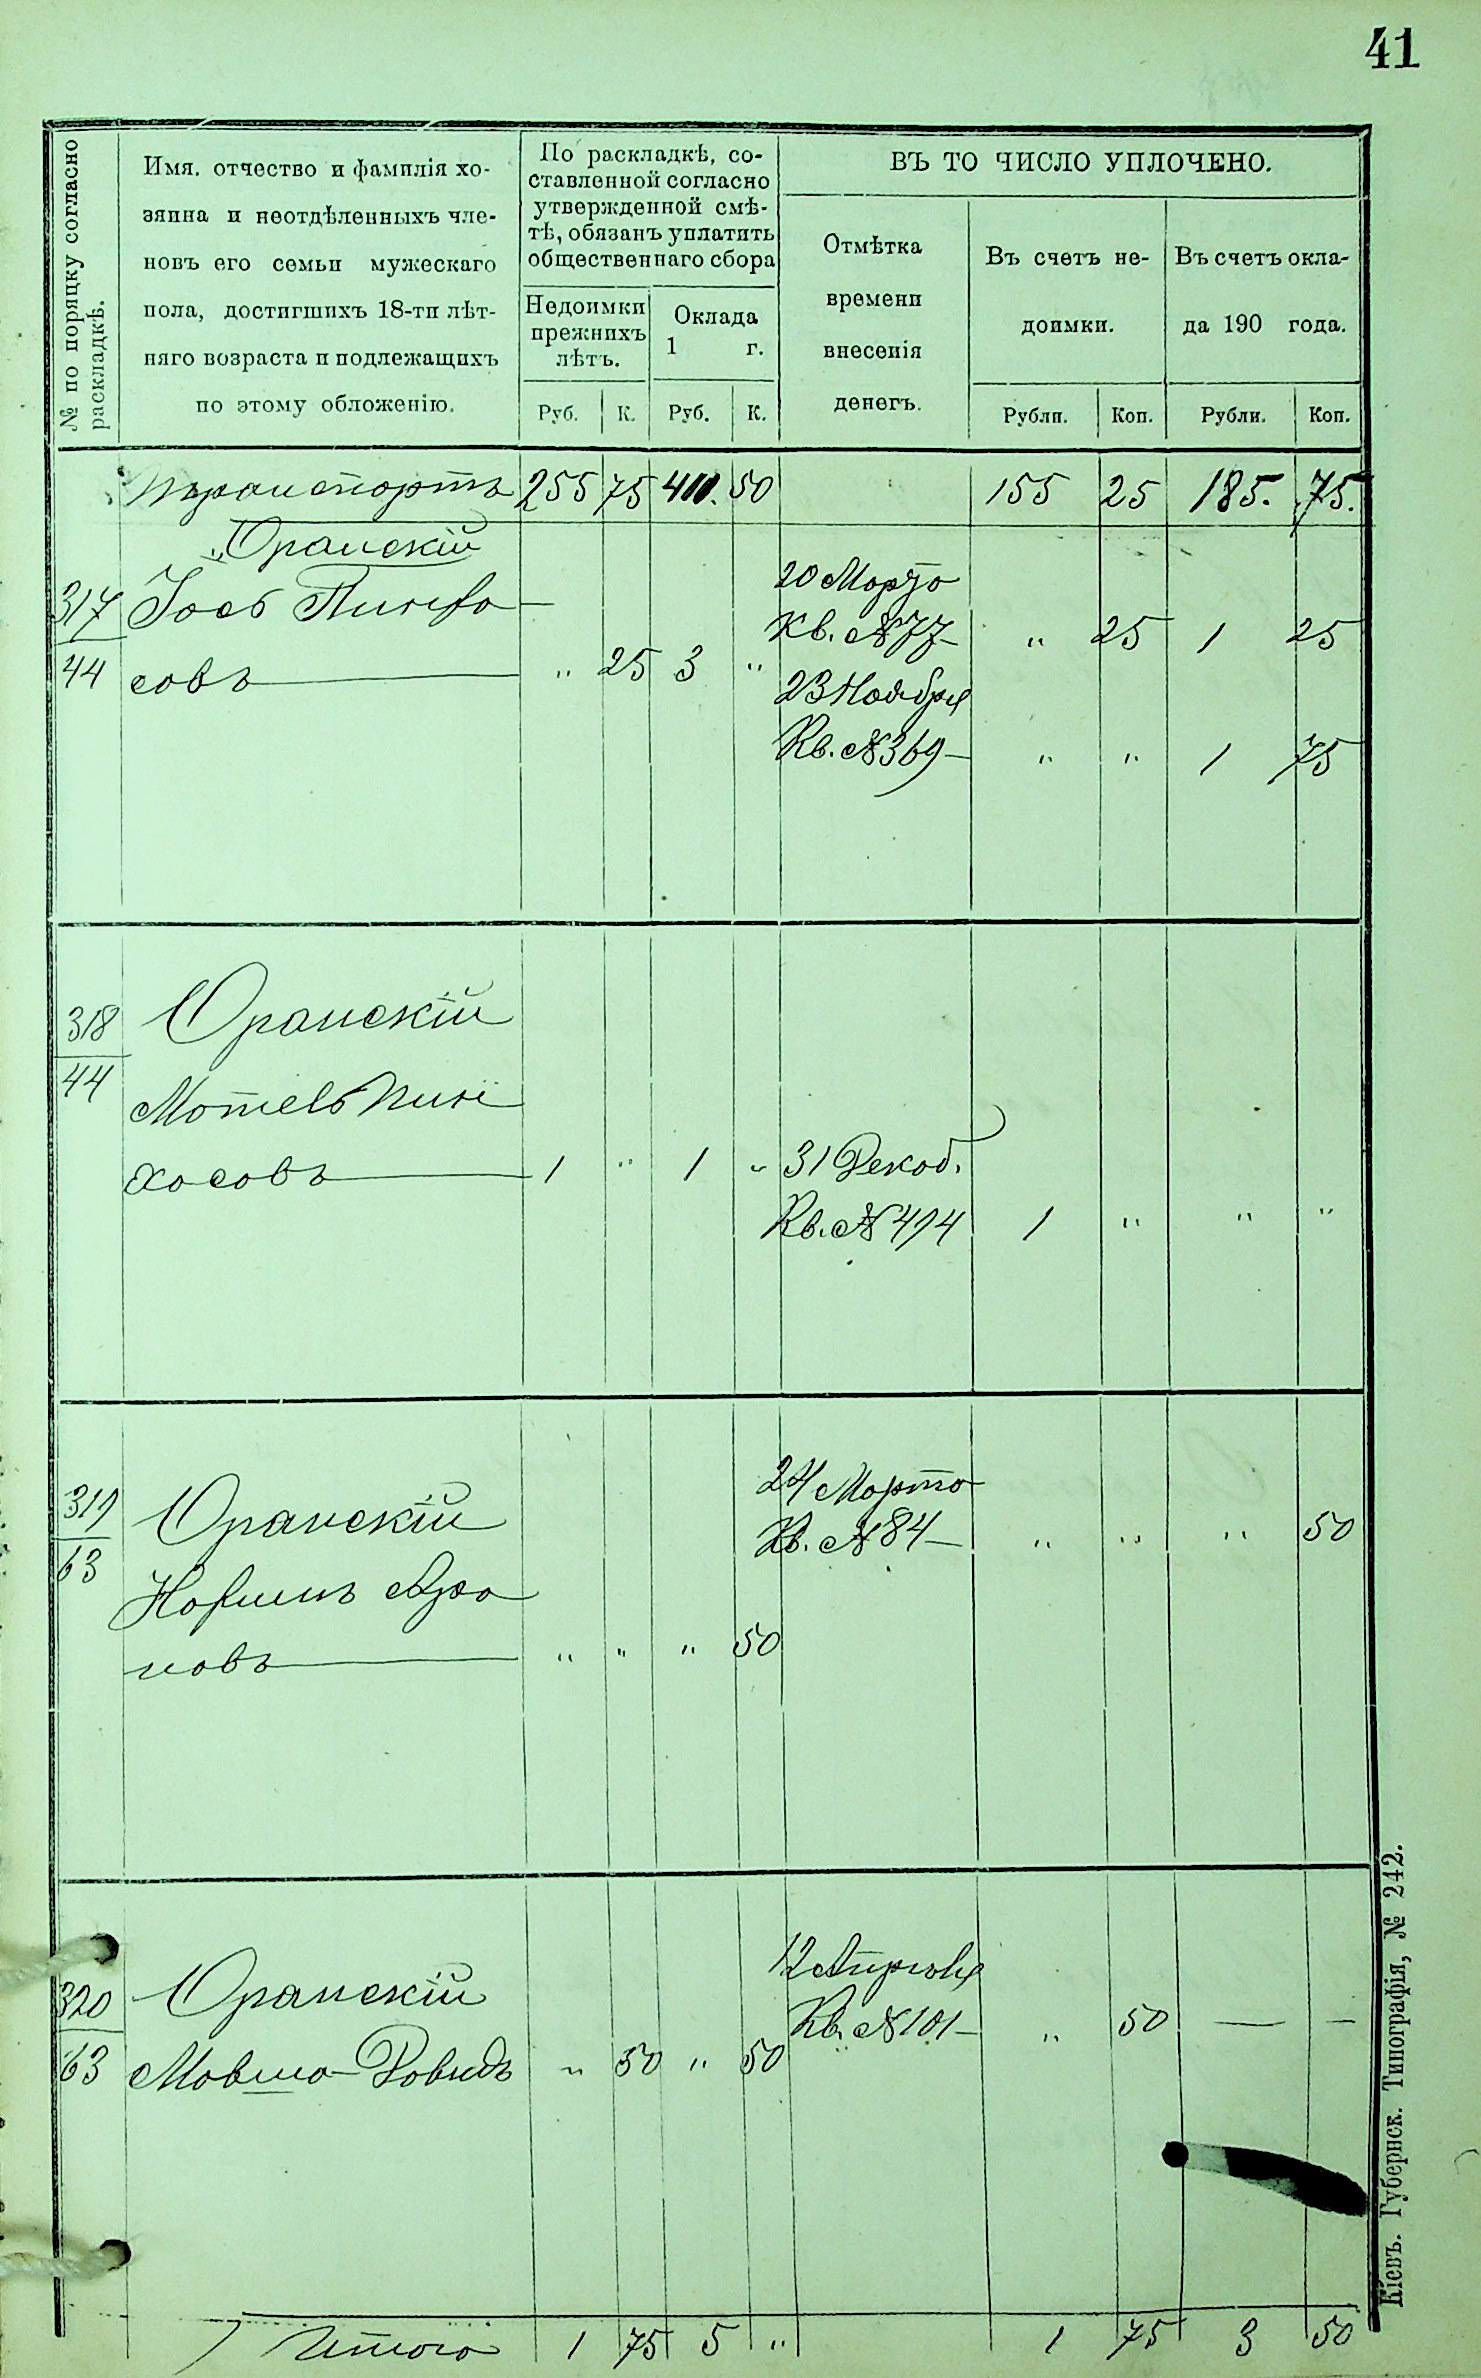 41
№ по порядку согласно
раскладкѣ.
Имя. отчество и фамилія хо-
зяина и неотдѣленныхъ чле-
новъ его семьи мужескаго
пола, достигшихъ 18-ти лѣт-
няго возраста и подлежащихъ
по этому обложенію.
По раскладкѣ, со-
ставленной согласно
утвержденной смѣ-
тѣ, обязанъ уплатить
общественнаго сбора
Недоимки
прежнихъ
лѣтъ.
Оклада
1 г.
Руб. К. Руб. К.
ВЪ ТО ЧИСЛО УПЛОЧЕНО.
Отмѣтка
времени
внесенія
денегъ.
Въ счетъ не-
доимки.
Въ счетъ окла-
да 190 года.
Рубли. Коп. Рубли. Коп.
Транспортъ 255 75 411. 50 155 25 185. 75.
Оранскій
317 Іось Пинхо-
44 совъ " 25 3 "
20 Марта
Кв. № 77 " 25 1 25
23 Ноября
Кв. № 369 " " 1 75
318 Оранскій
44
Мотель Пин
хосовъ 1 " 1 " 31 Декаб.
Кв. № 414 1 " " "
319 Оранскій
63
24 Марта
Кв. № 84 " " " 50
Аро
новъ " " " 50
320 Оранскій
63 Мовша-Довидъ " 50 " 50
12 Апрѣля
Кв. № 101 " 50 — —
Итого 1 75 5 " 1 75 3 50
Кіевъ. Губернск. Типографія, № 242.